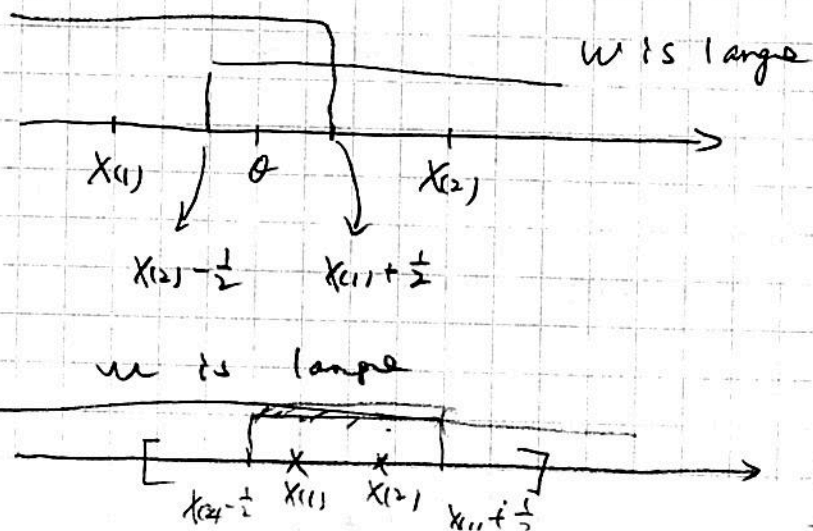 W is large
X(1) θ X(2)
X(2) - 1/2 X(1) + 1/2
w is large
X(2) - 1/2 X(1) X(2) X(1) + 1/2